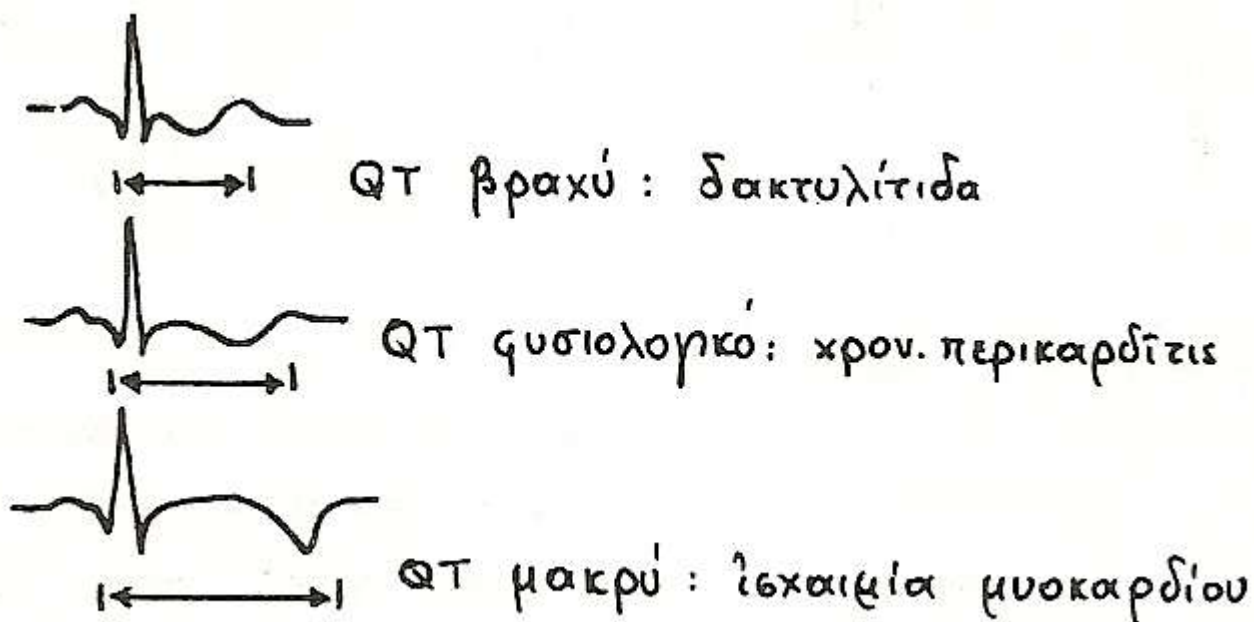 QT βραχύ: δακτυλίτιδα
QT φυσιολογικό: χρον. περικαρδῖτις
QT μακρύ: ἰσχαιμία μυοκαρδίου